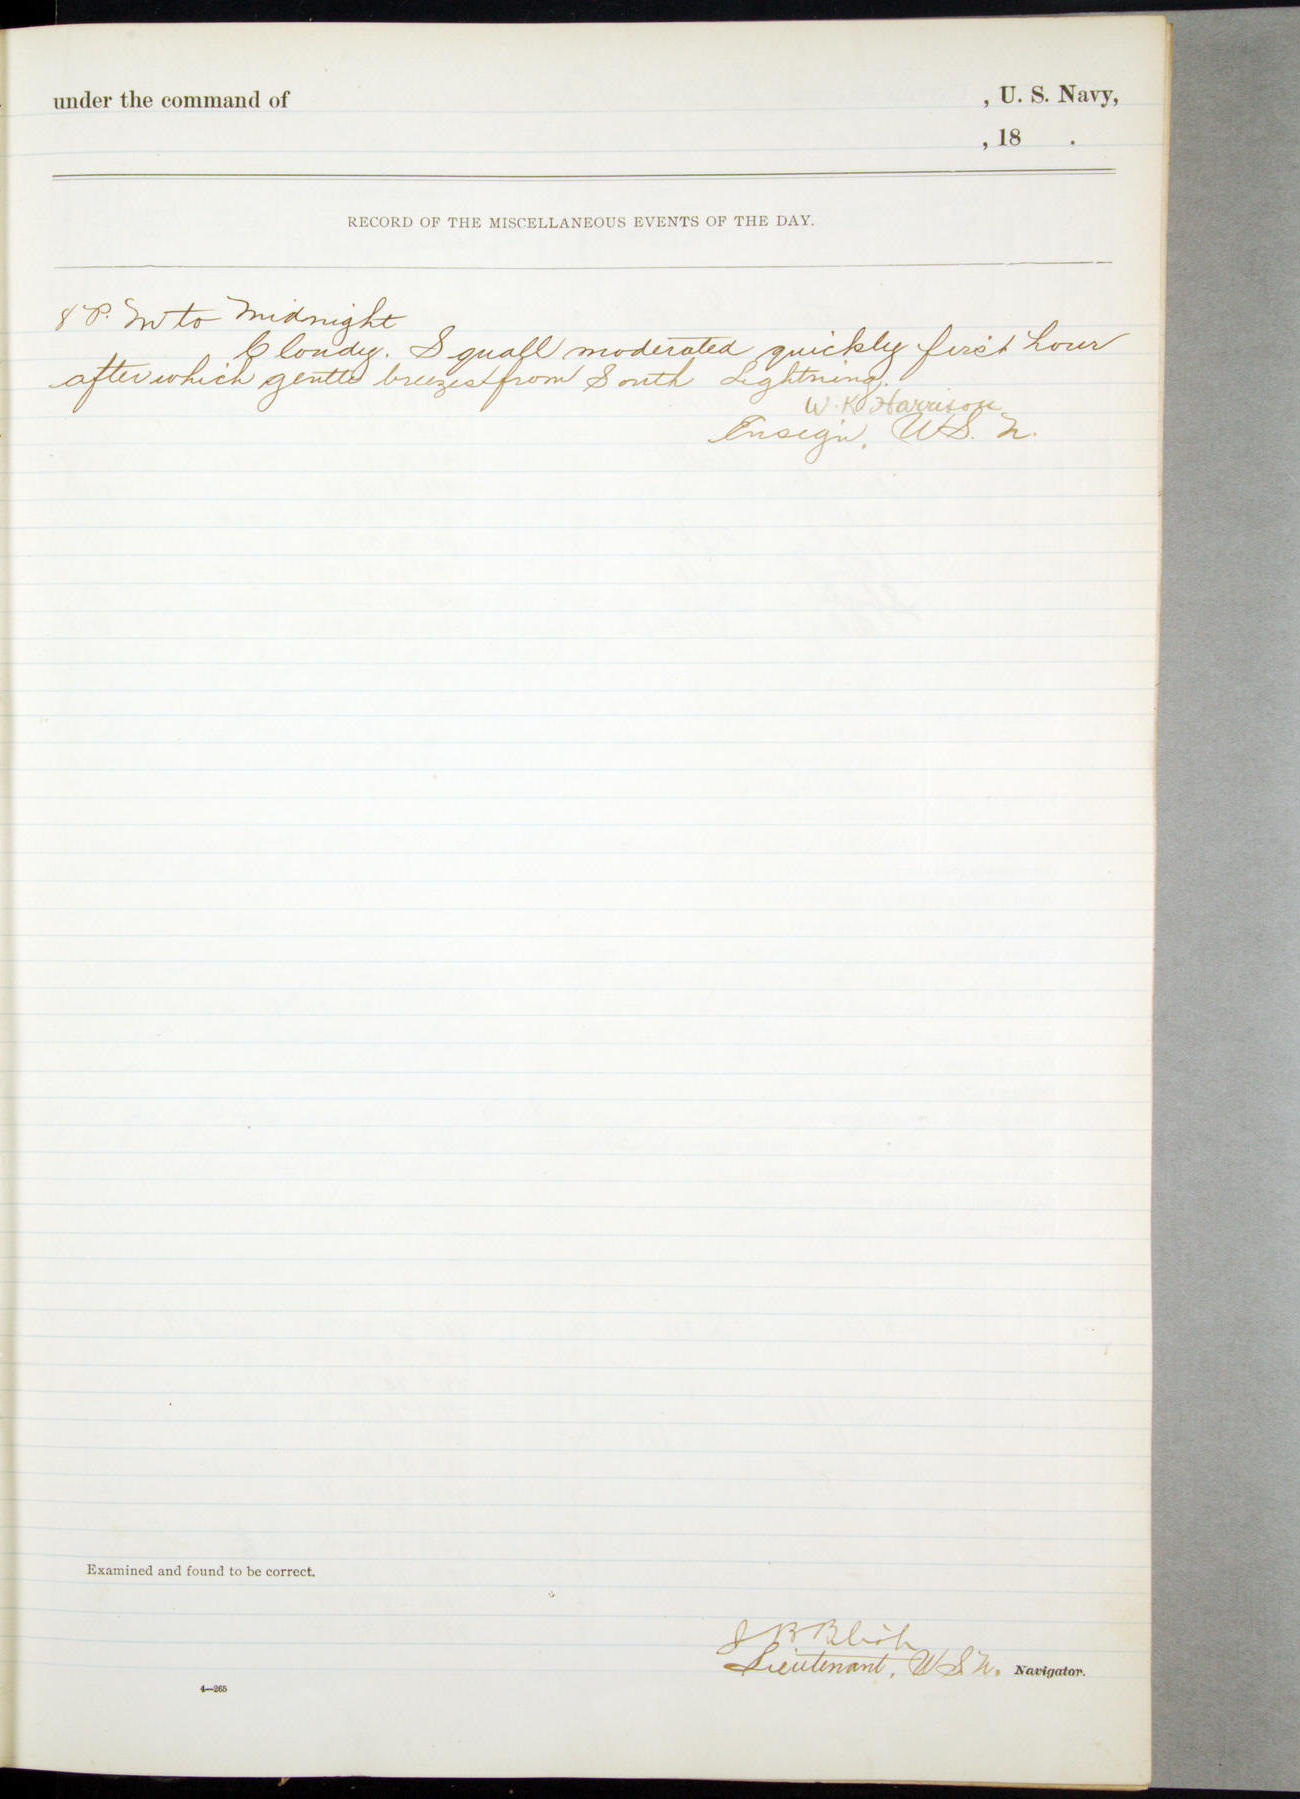 under the command of , U. S. Navy,
, 18 .
RECORD OF THE MISCELLANEOUS EVENTS OF THE DAY.
8 P. M to Midnight
Cloudy. Squall moderated quickly first hour
after which gentle breezes from South Lightning.
W. K. Harrison
Ensign, U.S. N.
Examined and found to be correct.
J B Blish
Lieutenant, U.S.N. Navigator.
4—265